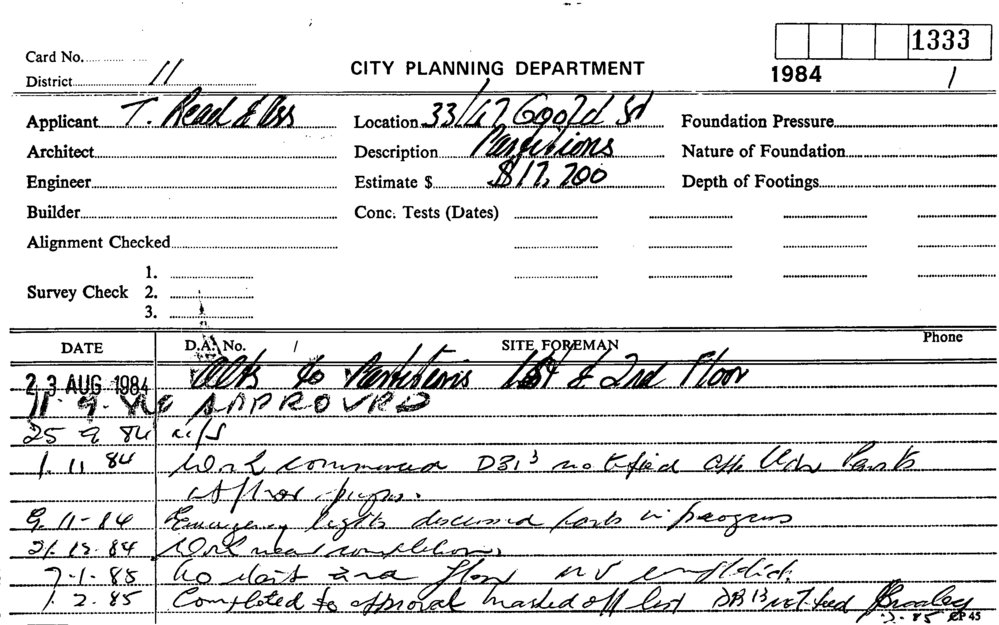 1333
Card No.
1984 /
District 11
CITY PLANNING DEPARTMENT
Applicant T. Read & Ass Location 33/67 Goold St Foundation Pressure
Architect Description Partitions Nature of Foundation
Engineer Estimate $ $17,700 Depth of Footings
Builder Conc. Tests (Dates)
Alignment Checked
1.
Survey Check 2.
3.
DATE D.A. No. / SITE FOREMAN Phone
23 AUG 1984 Alts to Partitions 1st & 2nd Floor
11. 9. APPROVED
25 9 84 n/s
1. 11 84 Work commenced notified Parts
9 11-84 Emergency lights discussed parts in progress
21. 84 Work near completion
7-1-85 2nd floor
1. 2. 85 Completed to approval marked off list notified
2-85 CP 45